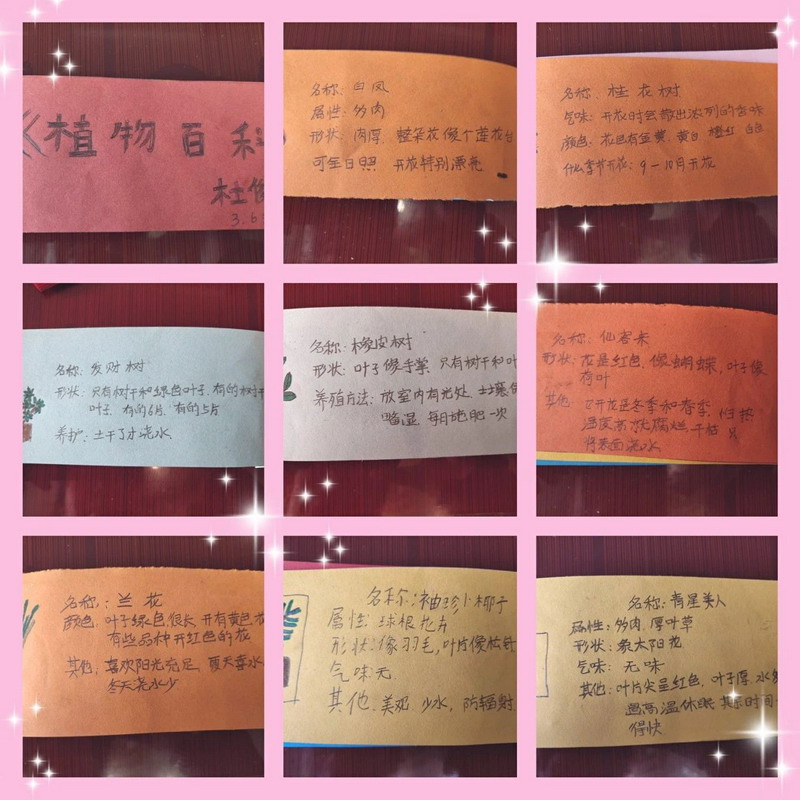 《植物百科
杜俊
3.6
名称：白凤
属性：多肉
形状：肉厚，整朵花像个莲花台
可全日照 开放特别漂亮
名称：桂花树
气味：开放时会散出浓烈的香味
颜色：花色有金黄、黄白、橙红、白色
什么季节开花：9－10月开花
名称：发财树
形状：只有树干和绿色叶子，有的树干
叶子，有的6片，有的5片
养护：土干了才浇水
名称：橡皮树
形状：叶子像手掌，只有树干和叶
养殖方法：放室内有光处，土壤
湿 每月施肥一次
名称：仙客来
形状：花是红色，像蝴蝶，叶子像
荷叶
其他：它开花是冬季和春季，但热
温度高就腐烂、干枯 只
将表面浇水
名称：兰花
颜色：叶子绿色，很长 开有黄色花
有些品种开红色的花
其他：喜欢阳光充足，夏天喜水
冬天浇水少
名称：袖珍小椰子
属性：球根花卉
形状：像羽毛，叶片像松针
气味：无
其他：美观，少水，防辐射
名称：青星美人
属性：多肉，厚叶草
形状：象太阳花
气味：无味
其他：叶片尖呈红色，叶子厚，水多
遇高温休眠 其余时间
得快